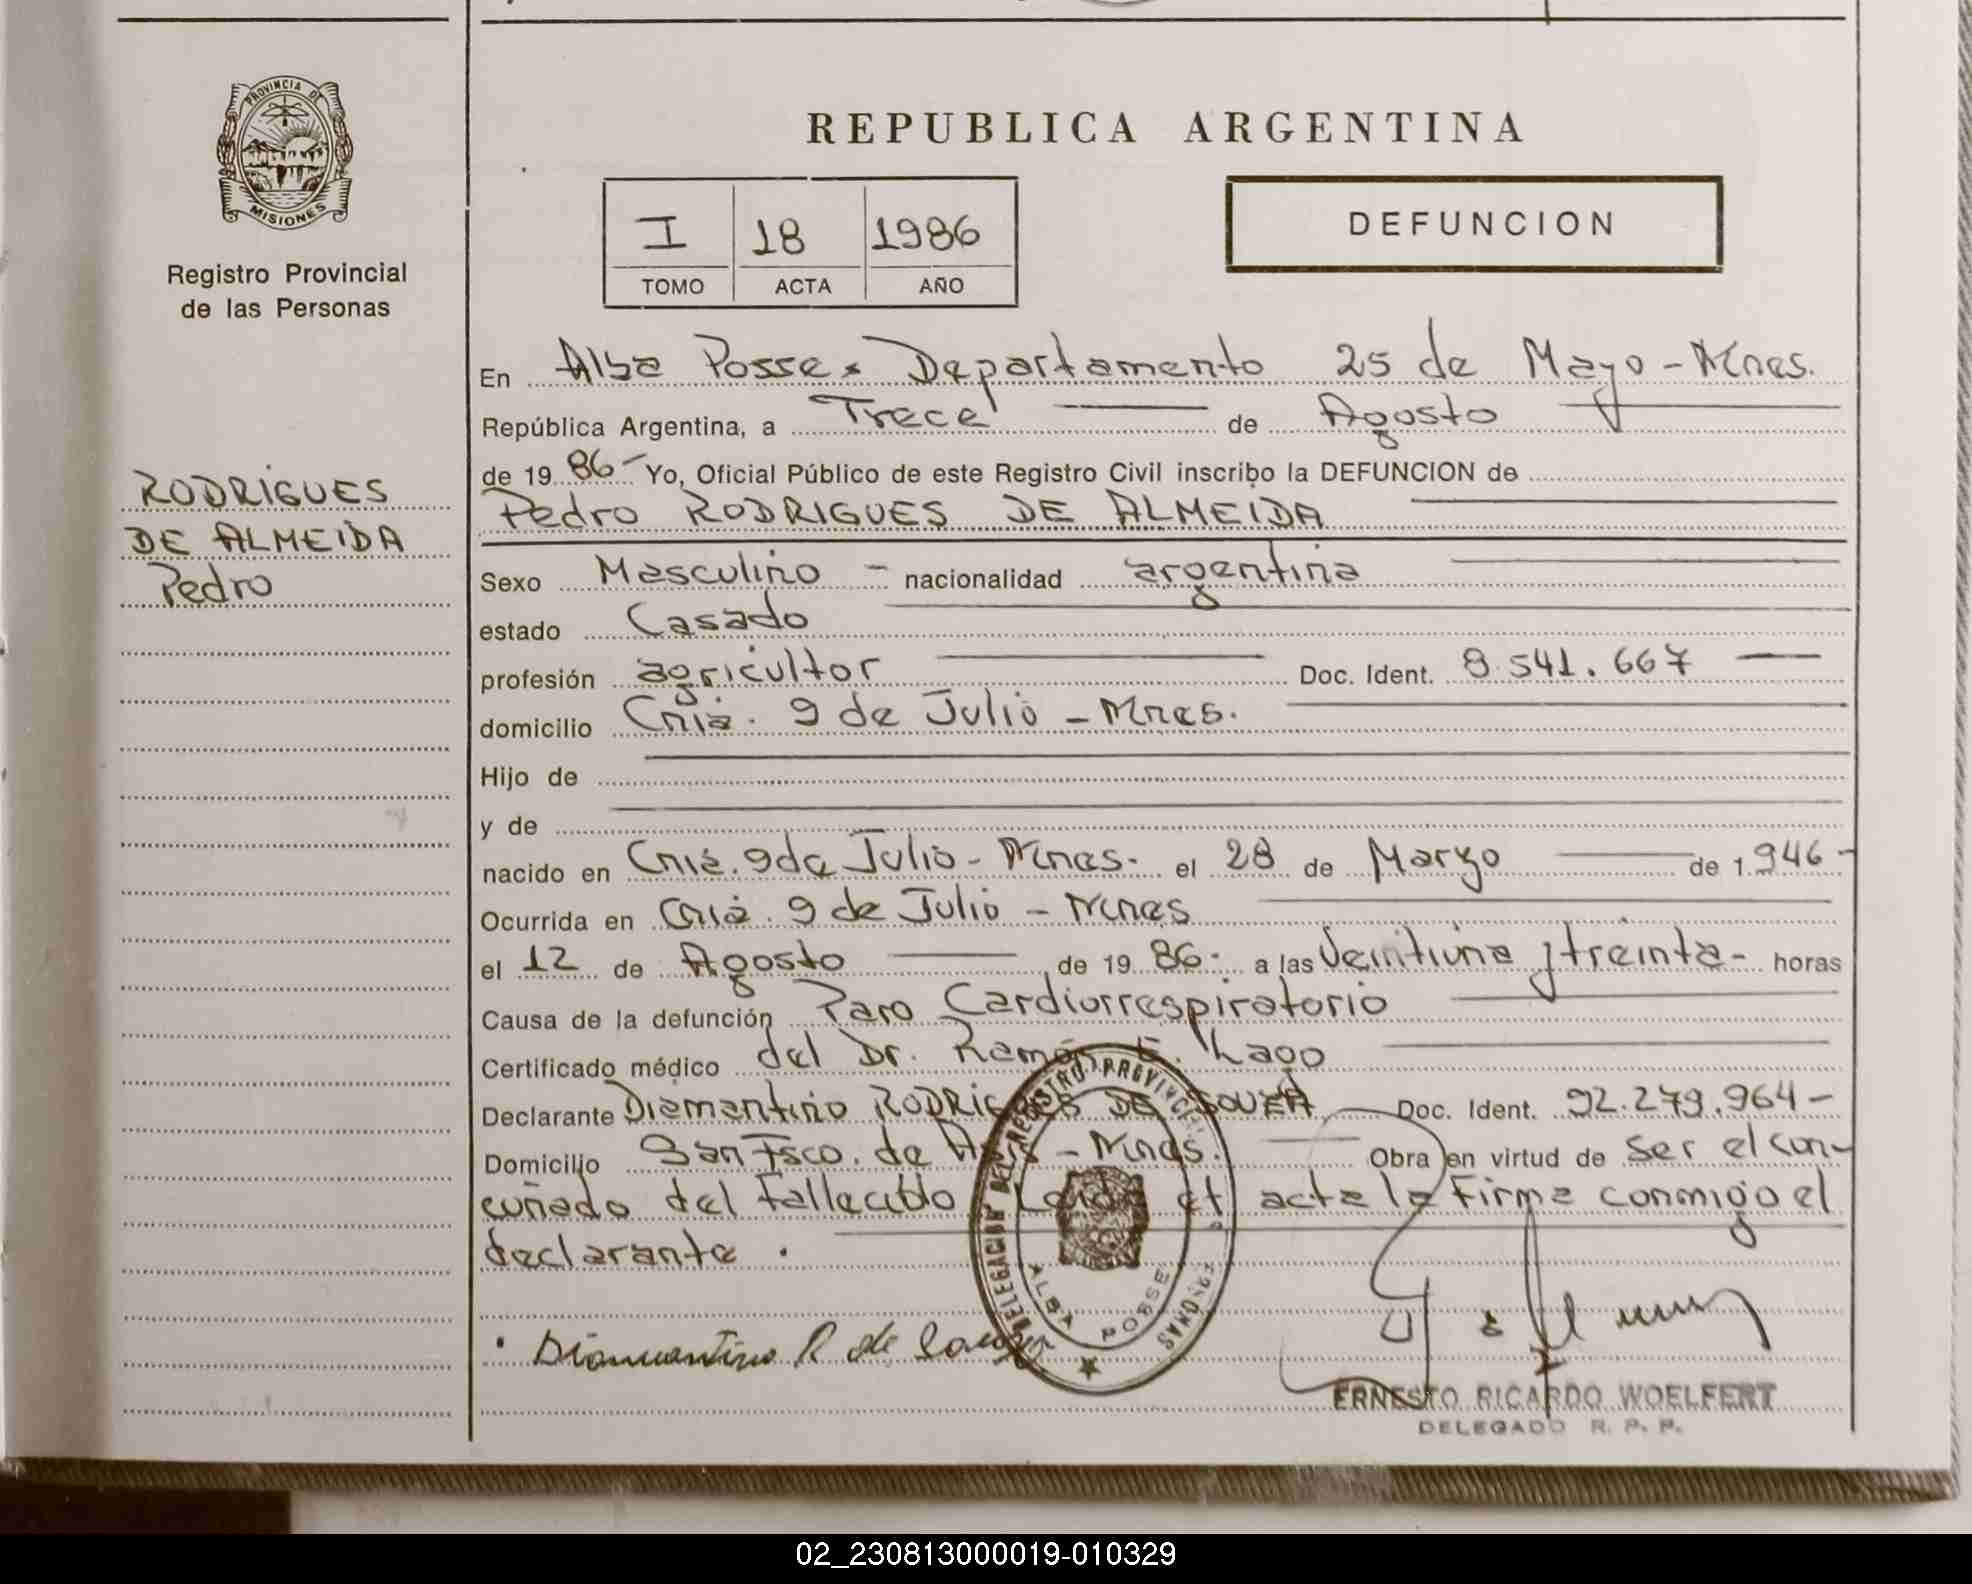 PROVINCIA DE
MISIONES
Registro Provincial
de las Personas
RODRIGUES
DE ALMEIDA
Pedro
REPUBLICA ARGENTINA
I 18 1986
TOMO ACTA AÑO
DEFUNCION
En Alba Posse. Departamento 25 de Mayo - Mnes.
República Argentina, a Trece de Agosto
de 19 86 - Yo, Oficial Público de este Registro Civil inscribo la DEFUNCION de
Pedro RODRIGUES DE ALMEIDA
Sexo Masculino - nacionalidad argentina
estado Casado
profesión agricultor Doc. Ident. 8.541.667
domicilio Cnia. 9 de Julio - Mnes.
Hijo de
y de
nacido en Cnia. 9 de Julio - Mnes. el 28 de Marzo de 1.946 -
Ocurrida en Cnia. 9 de Julio - Mnes
el 12 de Agosto de 19 86 - a las Veintiuna y treinta - horas
Causa de la defunción Paro Cardiorrespiratorio
Certificado médico del Dr. Ramón E. Lago
Declarante Diamantino RODRIGUES DE SOUZA Doc. Ident. 92.279.964 -
Domicilio San Fsco. de Asis - Mnes. Obra en virtud de ser el con-
cuñado del fallecido Leida el acta la firma conmigo el
declarante .
DELEGACION DEL REGISTRO PROVINCIAL PERSONAS
ALBA POSSE
Diamantino R de Souza
ERNESTO RICARDO WOELFERT
DELEGADO R. P. P.
02_230813000019-010329